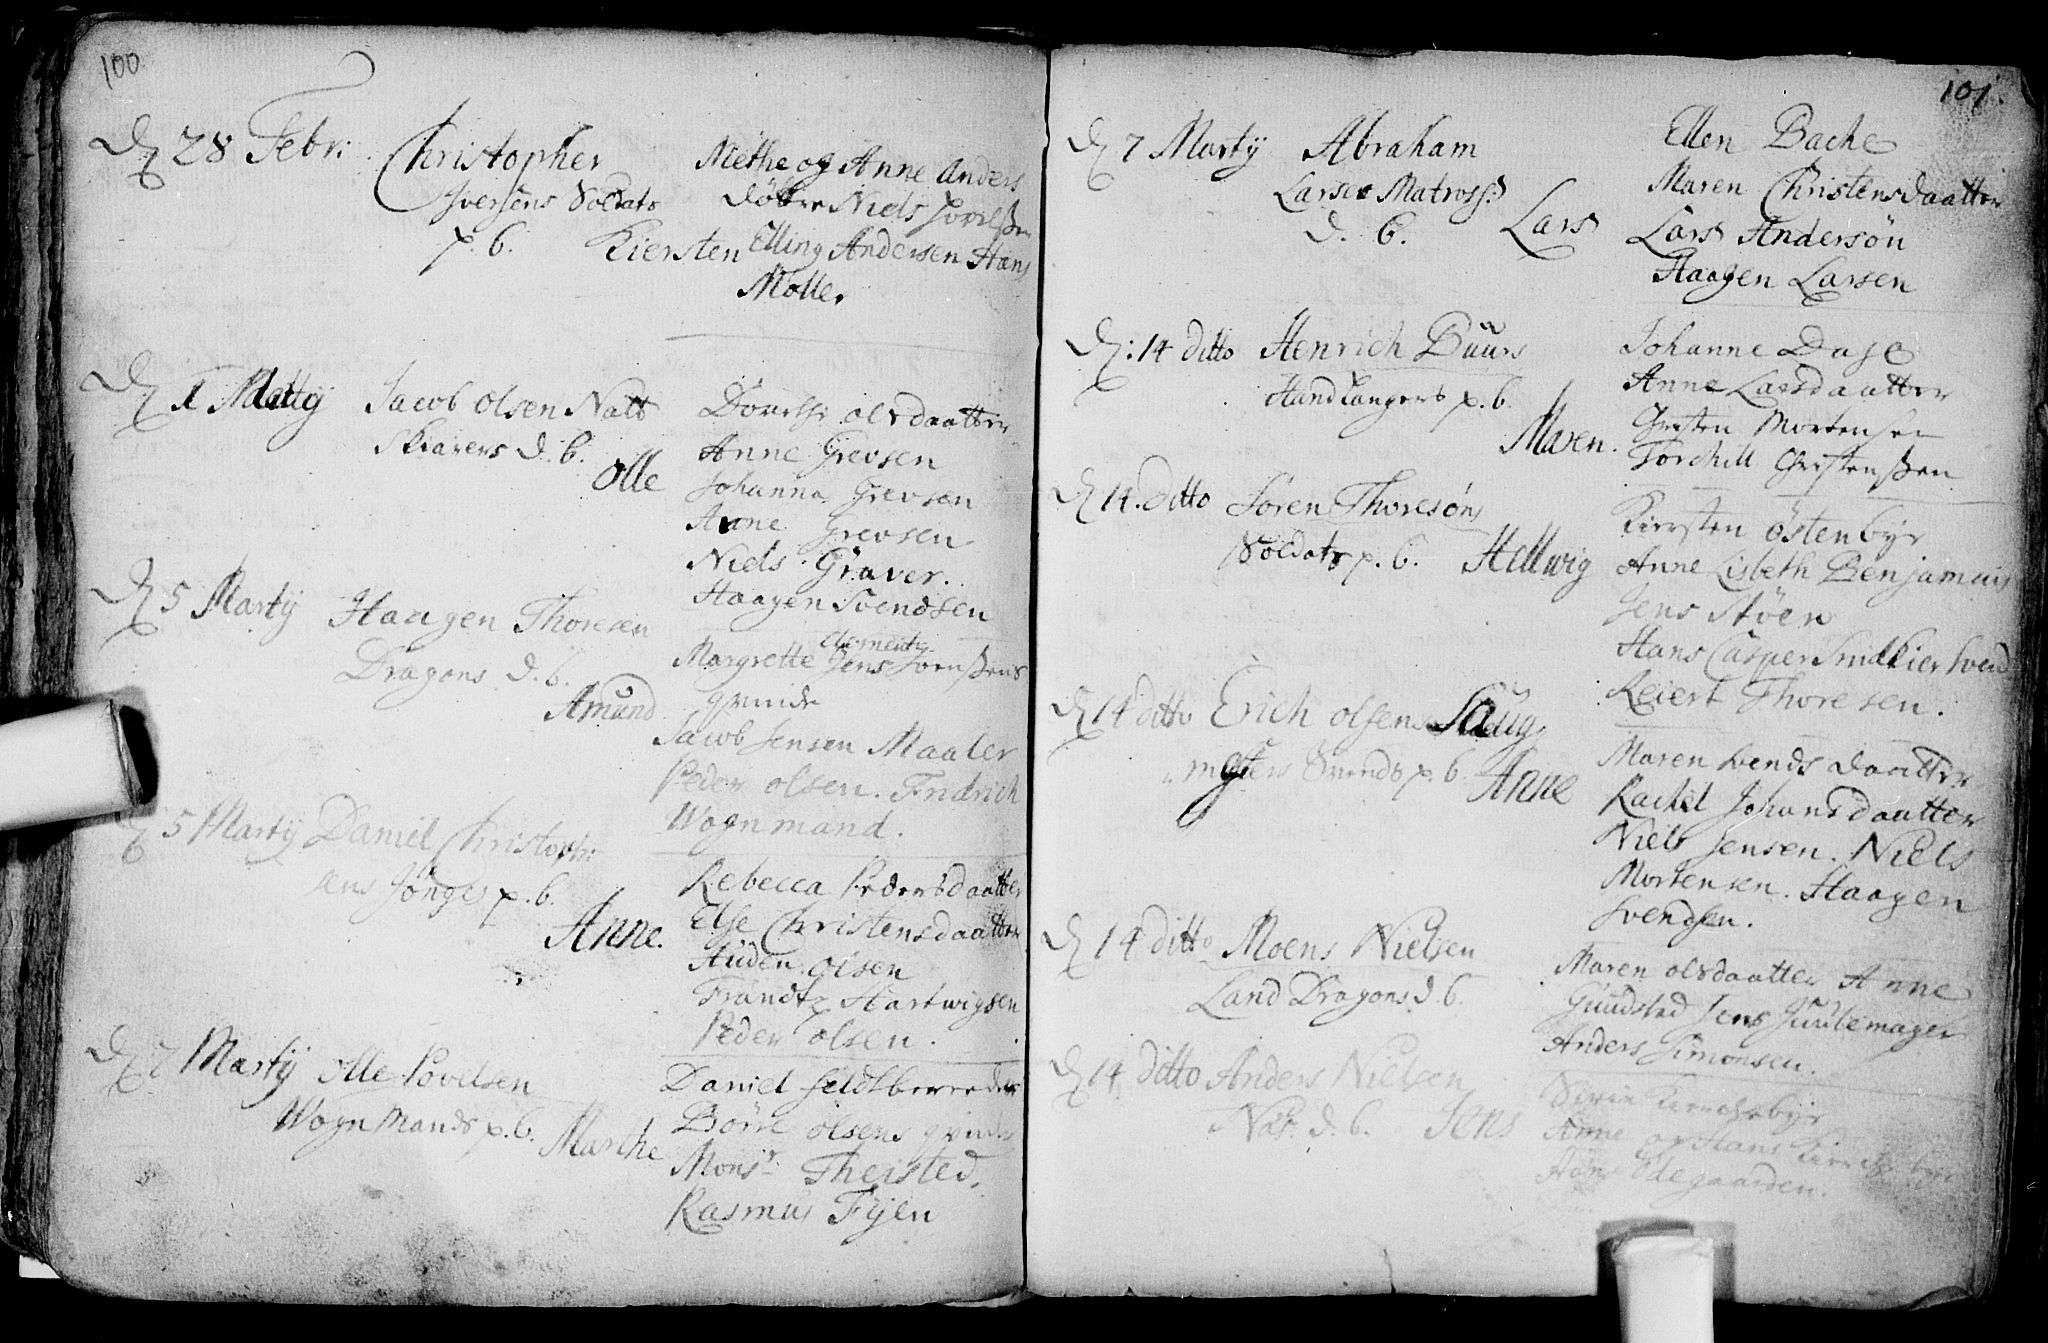 100
D 28 Febr:
Christopher
Iversens Soldats
p. b. Kiersten
Methe og Anne Anders
døttre Niels Povelssen
Elling Andersen Hans
Møller
D 1 Martij
Jacob Olsen Natt
Skiærers d. b.
Olle
Dorethe olsdaatter
Anne Grevsen
Johanna Grevsen
Anne Grevsen
Niels Graver.
Haagen Svendsen
D 5 Martij
Haagen Thoresen
Dragons d. b.
Amund
Margrette Jens Sørenssens
qvinde
Jacob Jensen Maaler
Peder olsen. Fridrich
Wognmand.
D 5 Martij Daniel Christoph:
sens Jønges p. b.
Anne.
Rebecca Pedersdaatter
Else Christensdaatter
Auden olsen
Frandtz Hartwigsen
Peder olsen.
D 7 Martij Olle Povelsen
Wognmands p. b. Marthe
Daniel Feldtberreder
Børre olsens qvinde
Monsr Theisted.
Rasmus Fyen
101.
D 7 Martij Abraham
Larsen Matross:
d. b. Lars
Ellen Bache
Maren Christensdaatter
Lars Andersøn
Haagen Larsen
D: 14 ditto Henrich Buurs
Handlangers p. b.
Maren.
Johanne Dase
Anne Larsdaatter
Christen Mortensen
Torchill Christenssen
D 14. ditto Søren Thoresøns
Soldats p. b. Hellwig
Kiersten østenbye
Anne Lisbeth Benjamins
Jens Støer
Hans Casper Snidkier Svend
Reiert Thoresen.
D 14 ditto Erich olsens Saug
mesters Svends p. b. Anne
Maren Svends daatter
Rachel Johansdaatter
Niels Jensen. Niels
Mortensen. Haagen
Svendsen.
D 14 ditto Moens Nielsen
Land Dragons d. b.
Maren olsdaatter Anne
Guudsted Jens
Anders Simonsen.
D 14 ditto Anders Nielsen
d. b. Jens
Anne og Hans
Hans Ødegaarden.